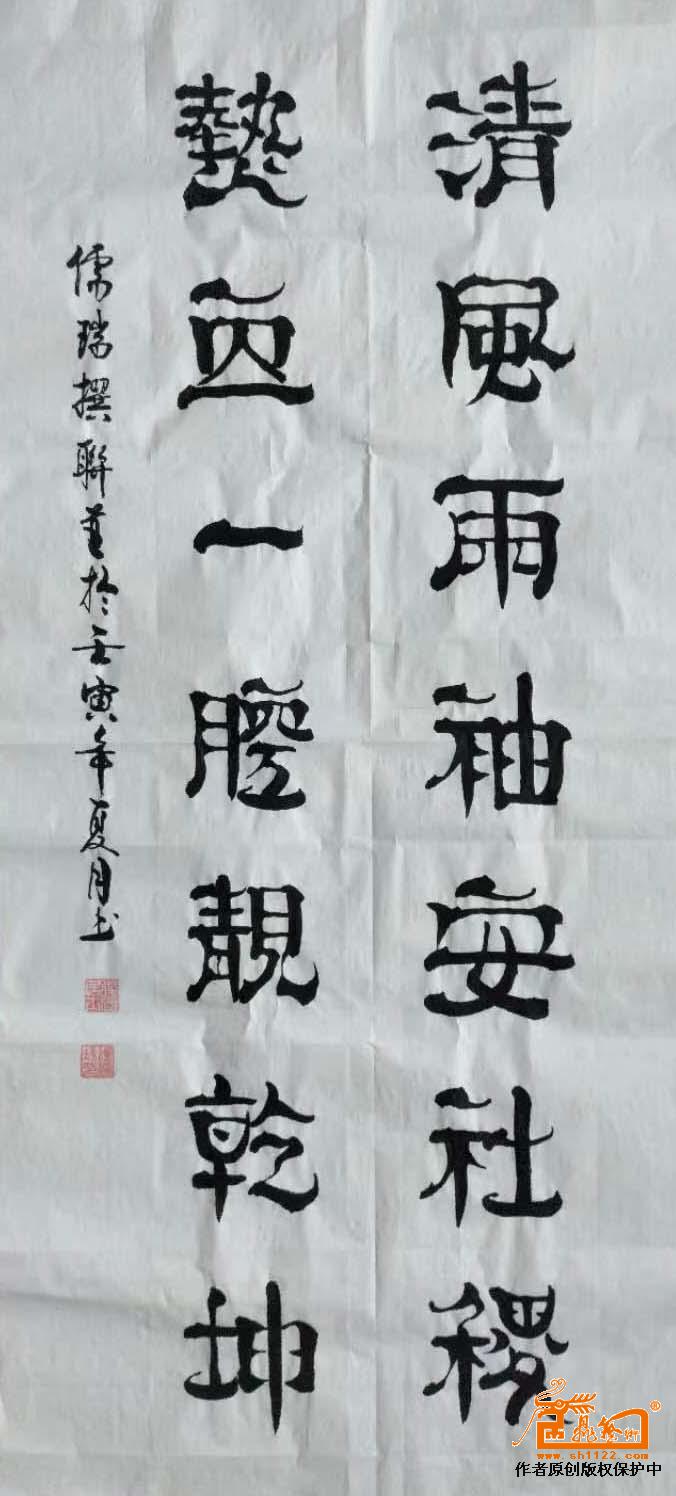 清風雨袖安社稷
熱血一腔靚乾坤
儒瑞撰聯並於壬寅年夏月书
www.sh1122.com
作者原创版权保护中